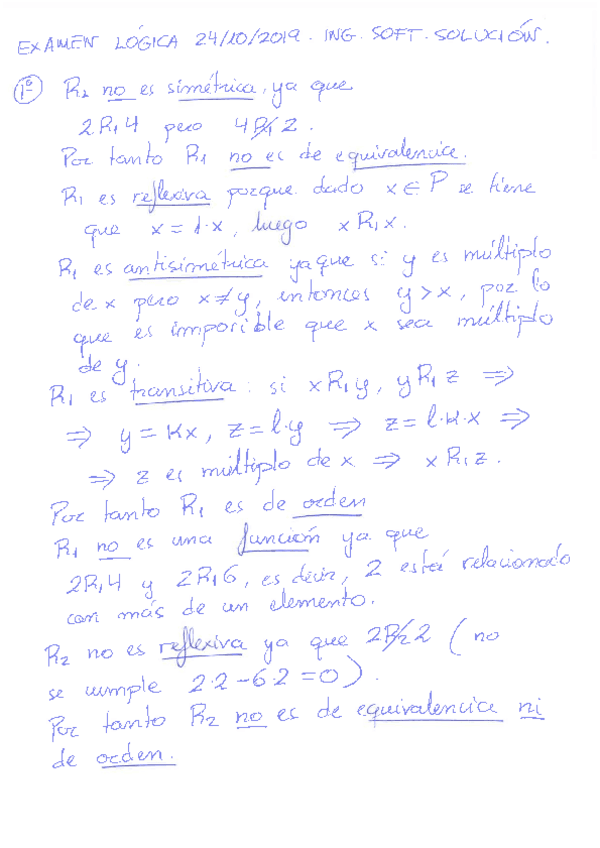 EXAMEN LÓGICA 24/10/2019. ING. SOFT. SOLUCIÓN.
1º R₁ no es simétrica, ya que
2R₁4 pero 4R̸₁2.
Por tanto R₁ no es de equivalencia.
R₁ es reflexiva porque dado x ∈ P se tiene
que x = 1·x, luego xR₁x.
R₁ es antisimétrica ya que si y es múltiplo
de x pero x ≠ y, entonces y > x, por lo
que es imposible que x sea múltiplo
de y.
R₁ es transitiva: si xR₁y, yR₁z ⇒
⇒ y = Kx, z = l·y ⇒ z = l·K·x ⇒
⇒ z es múltiplo de x ⇒ xR₁z.
Por tanto R₁ es de orden
R₁ no es una función ya que
2R₁4 y 2R₁6, es decir, 2 está relacionado
con más de un elemento.
R₂ no es reflexiva ya que 2R̸₂2 (no
se cumple 2·2-6·2=0).
Por tanto R₂ no es de equivalencia ni
de orden.